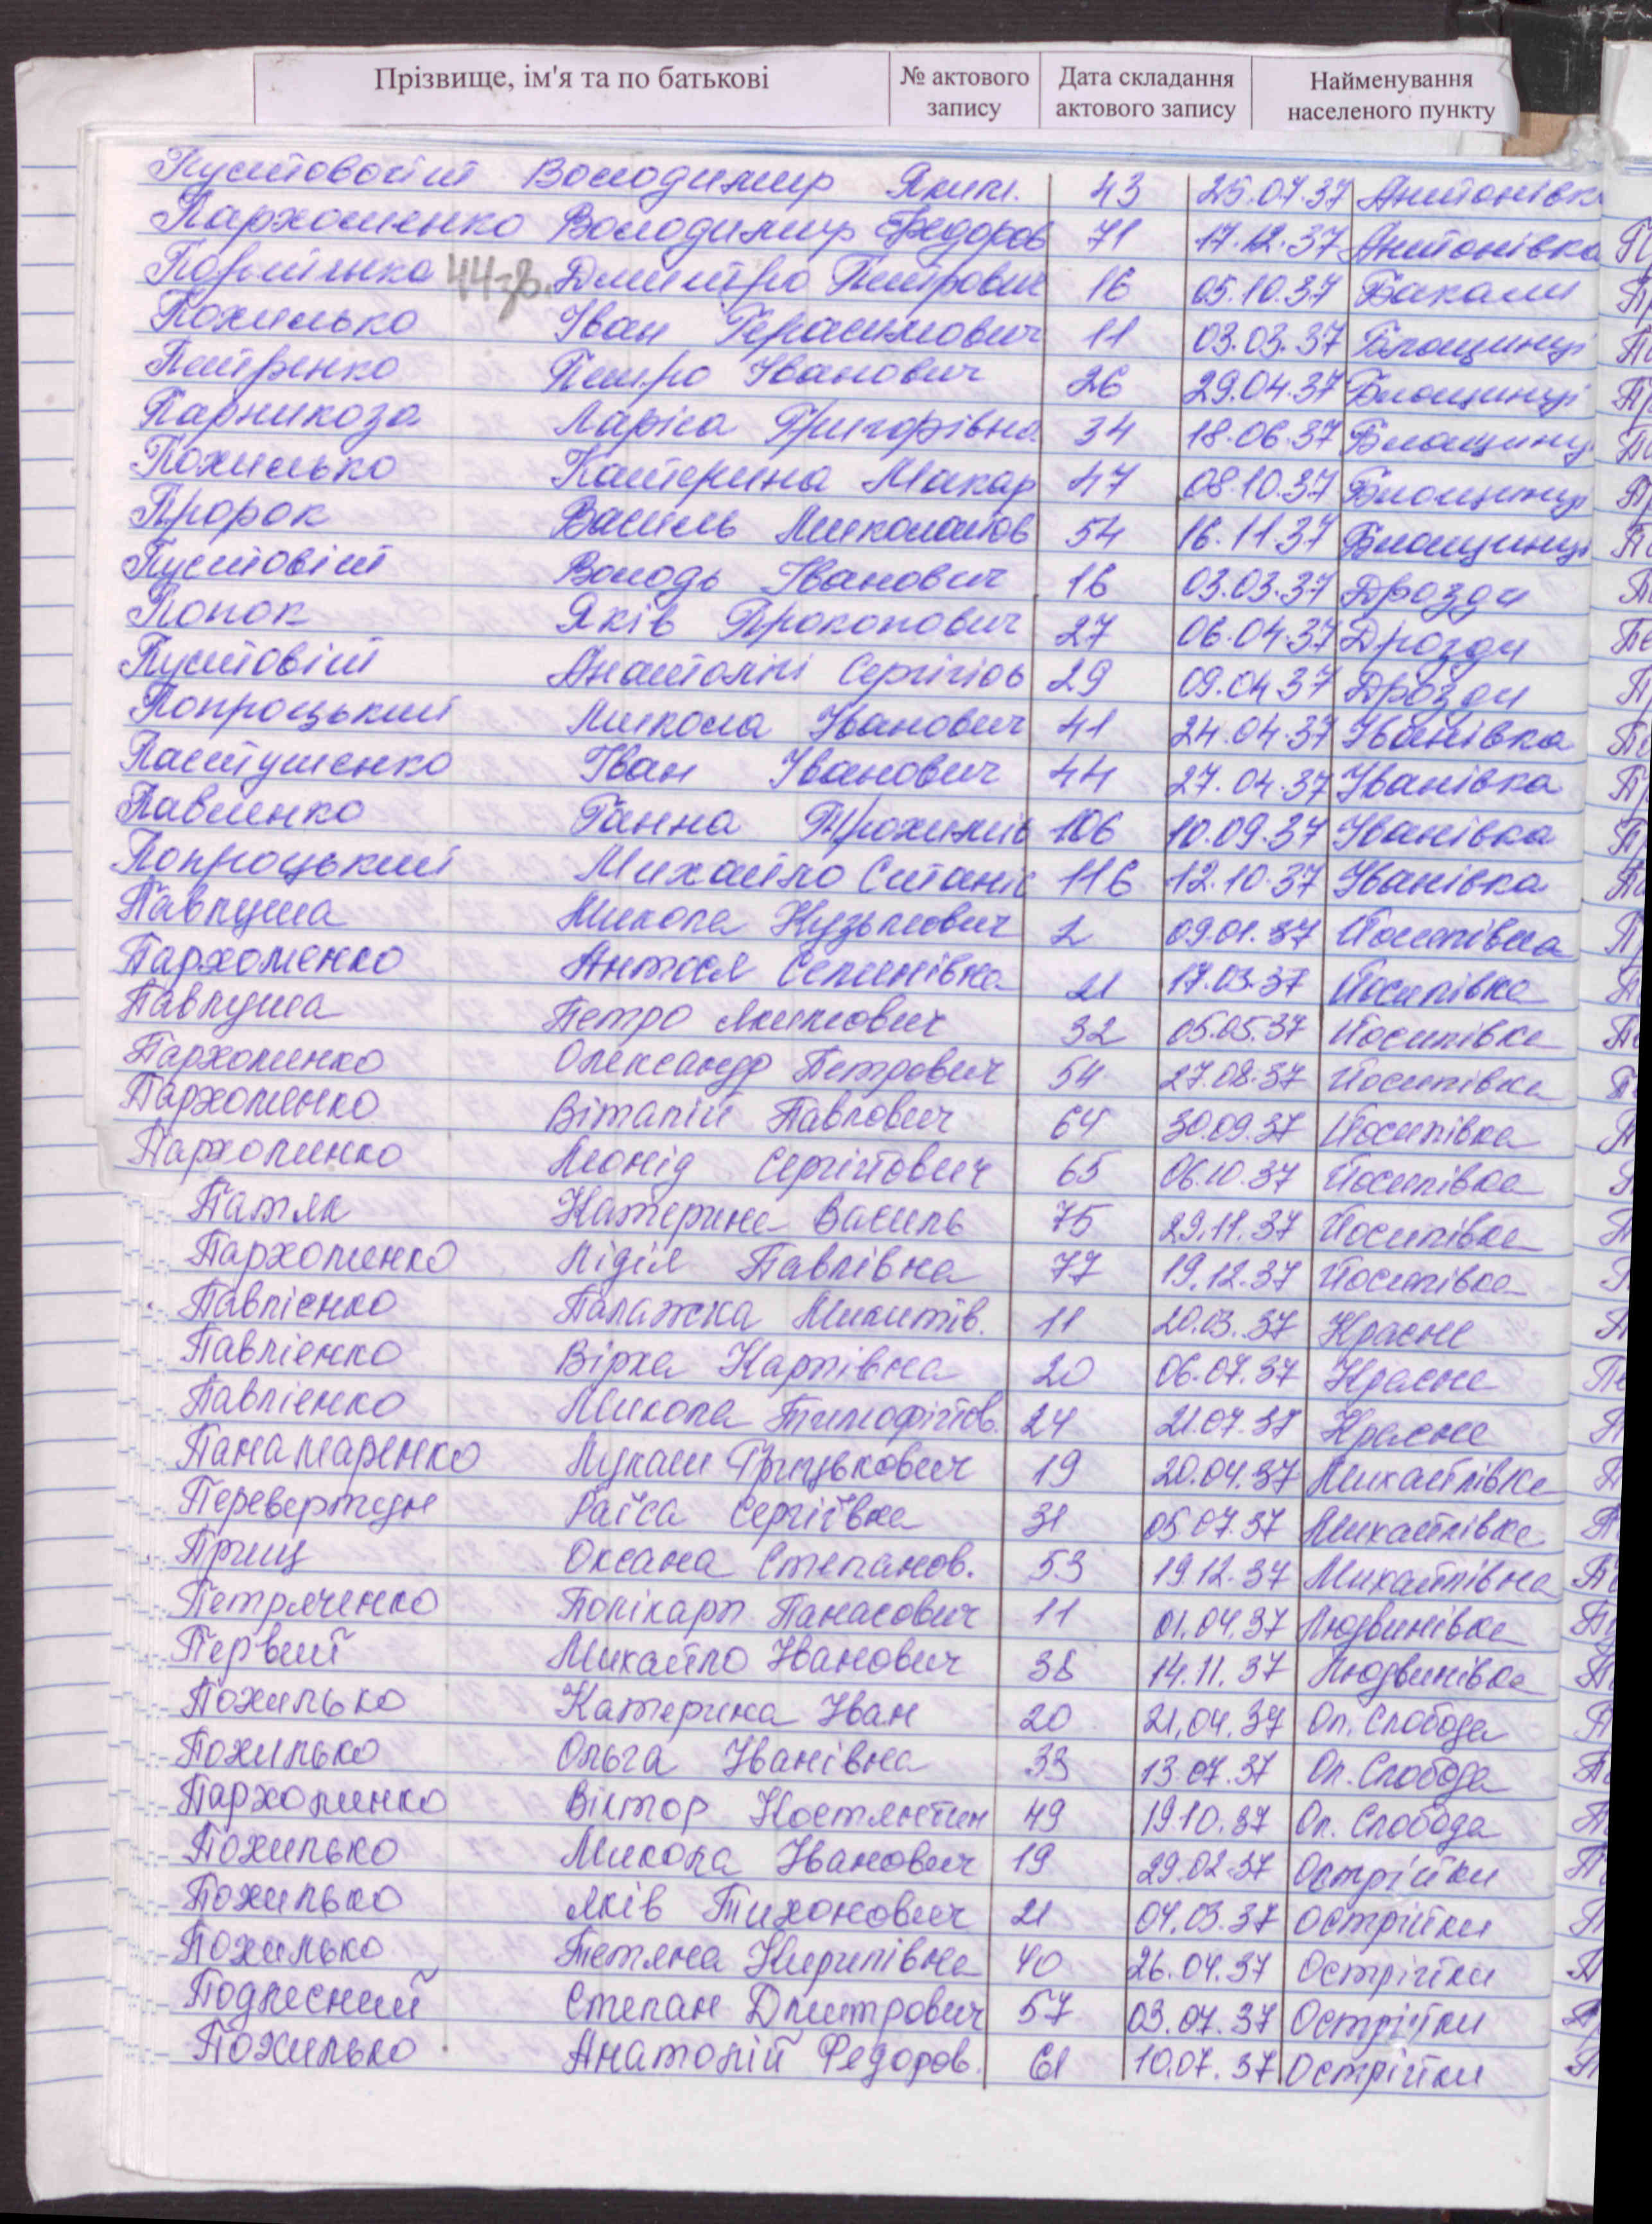 Прізвище, ім'я та по батькові № актового запису Дата складання актового запису Найменування населеного пункту
Пустовойт Володимир Яким. 43 25.07.37 Антонівка
Пархоменко Володимир Федоров 71 17.12.37 Антонівка
44зв. Дмитро Петрович 16 05.10.37 Бакали
Похилько Іван Герасимович 11 03.03.37 Блощинці
Петренко Петро Іванович 26 29.04.37 Блощинці
Парникоза Ларіса Григорівна 34 18.06.37 Блощинці
Похилько Катерина Макар 47 08.10.37 Блощинці
Пророк Василь Миколайов 54 16.11.37 Блощинці
Пустовіт Володь Іванович 16 03.03.37 Дрозди
Попок Яків Прокопович 27 06.04.37 Дрозди
Пустовіт Анатолій Сергійов 29 09.04.37 Дрозди
Попроцький Микола Іванович 41 24.04.37 Іванівка
Пастушенко Іван Іванович 44 27.04.37 Іванівка
Павленко Ганна Трохимів 106 10.09.37 Іванівка
Попроцький Михайло 116 12.10.37 Іванівка
Павлуша Микола Кузьмович 2 09.01.37 Йосипівка
Пархоменко Антося Семенівна 21 17.03.37 Йосипівка
Павлуша Петро Якимович 32 05.05.37 Йосипівка
Пархоменко Олександр Петрович 54 27.08.37 Йосипівка
Пархоменко Віталій Павлович 64 30.09.37 Йосипівка
Пархоменко Леонід Сергійович 65 06.10.37 Йосипівка
Патяк Катерина Василь 75 29.11.37 Йосипівка
Пархоменко Лідія Павлівна 77 19.12.37 Йосипівка
Павлієнко Палажка Микитів. 11 20.03.37 Красне
Павлієнко Вірка Карпівна 20 06.07.37 Красне
Павлієнко Микола Тимофійов. 24 21.07.37 Красне
Панамаренко Лукаш Грицькович 19 20.04.37 Михайлівка
Перевертун Раїса Сергіївна 31 05.07.37 Михайлівка
Приц Оксана Степанов. 53 19.12.37 Михайлівка
Петряченко Полікарп Панасович 11 01.04.37 Людвинівка
Первий Михайло Іванович 38 14.11.37 Людвинівка
Похилько Катерина Іван 20 21.04.37 Ол. Слобода
Похилько Ольга Іванівна 33 13.07.37 Ол. Слобода
Пархоменко Віктор Костянтин 49 19.10.37 Ол. Слобода
Похилько Микола Іванович 19 29.02.37 Острійки
Похилько Яків Тихонович 21 04.03.37 Острійки
Похилько Тетяна Кирилівна 40 26.04.37 Острійки
Подлесний Степан Дмитрович 57 03.07.37 Острійки
Похилько Анатолій Федоров. 61 10.07.37 Острійки